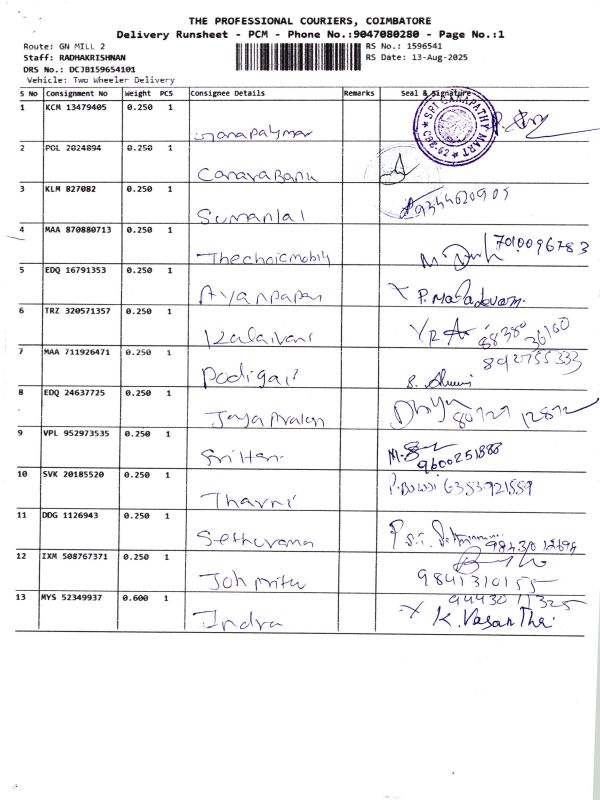 THE PROFESSIONAL COURIERS, COIMBATORE
Delivery Runsheet - PCM - Phone No.:9047080280 - Page No.:1
Route: GN MILL 2
RS No.: 1596541
Staff: RADHAKRISHNAN
RS Date: 13-Aug-2025
DRS No.: DCJB159654101
Vehicle: Two Wheeler Delivery
S No Consignment No Weight PCS Consignee Details Remarks Seal & Signature
1 KCM 13479405 0.250 1
SRI GANAPATHY MART
CBE-62
2 POL 2024894 0.250 1 Canara Bank
3 KLM 827082 0.250 1 Sumanlal 9344620909
4 MAA 870880713 0.250 1 7010096783
5 EDQ 16791353 0.250 1 Ayanpapan P. Mahadevan
6 TRZ 320571357 0.250 1 Kalaivani
7 MAA 711926471 0.250 1 Podigai
8 EDQ 24637725 0.250 1 Dhiya
9 VPL 952973535 0.250 1 Sri Hari 9600251888
10 SVK 20185520 0.250 1 Tharni 6353921559
11 DDG 1126943 0.250 1
12 IXM 508767371 0.250 1 9841310155
13 MYS 52349937 0.600 1 Indra 9443011325
K. Vasantha